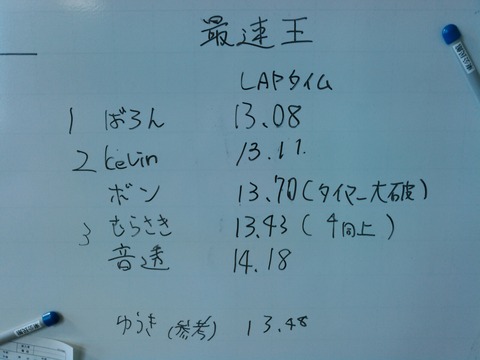 最速王
LAPタイム
1 ばろん 13.08
2 Kelin 13.17.
ボン 13.70(タイマー大破)
3 むらさき 13.43 (4同上)
音透 14.18
ゆうき(参考) 13.48